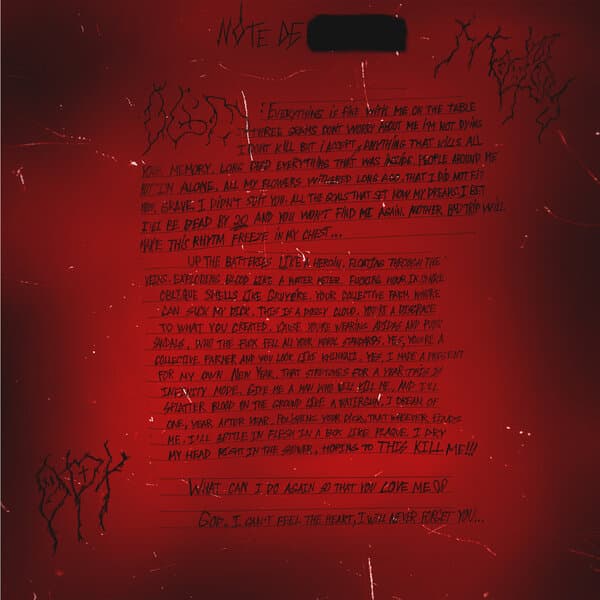 NOTE DE
"EVERYTHING IS FINE WITH ME ON THE TABLE
THREE GRAMS DON'T WORRY ABOUT ME I'M NOT DYING
I DONT KILL BUT I ACCEPT, ANYTHING THAT KILLS ALL
YOUR MEMORY. LONG DEAD EVERYTHING THAT WAS INSIDE. PEOPLE AROUND ME
BUT I'M ALONE, ALL MY FLOWERS WITHERED LONG AGO. THAT I DID NOT FIT
GRAVE I DIDN'T SUIT YOU. ALL THE GOALS THAT SET NOW MY DREAMS I BET
I'LL BE DEAD BY 20 AND YOU WON'T FIND ME AGAIN. ANOTHER BAD TRIP WILL
MAKE THIS RHYTM FREEZE IN MY CHEST...
UP THE BATTERIES LIKE A HEROIN. FLOATING THROUGH THE
VEINS. EXPLODING BLOOD LIKE A WATER METER. FUCKING HOUR IN
OBLIQUE SMELLS LIKE GRUYERE. YOUR COLLECTIVE FARM WHORE
CAN SUCK MY DICK. THIS IS A CLOUD. YOU'RE A DISGRACE
TO WHAT YOU CREATED. CAUSE YOU'RE WEARING ADIDAS AND
SANDALS. WHO THE FUCK FELL ALL YOUR MORAL STANDARDS. YES, YOU'RE A
COLLECTIVE FARMER AND YOU LOOK LIKE YES, I MADE A PRESENT
FOR MY OWN NEW YEAR. THAT STRETCHES FOR A YEAR THIS IS
INFINITY MODE. GIVE ME A MAN WHO WILL KILL ME. AND I'LL
SPLATTER BLOOD ON THE GROUND LIKE A WATERGUN. I DREAM OF
ONE, YEAR AFTER YEAR. POLISHING YOUR DICK, THAT WHOEVER FINDS
ME. I'LL SETTLE IN FLESH IN A BOX LIKE PLAGUE. I DRY
MY HEAD RIGHT IN THE SHOWER, HOPING TO THIS KILL ME!!!
WHAT CAN I DO AGAIN SO THAT YOU LOVE ME
GOD, I CAN'T FEEL THE HEART, I WILL NEVER FORGET YOU...